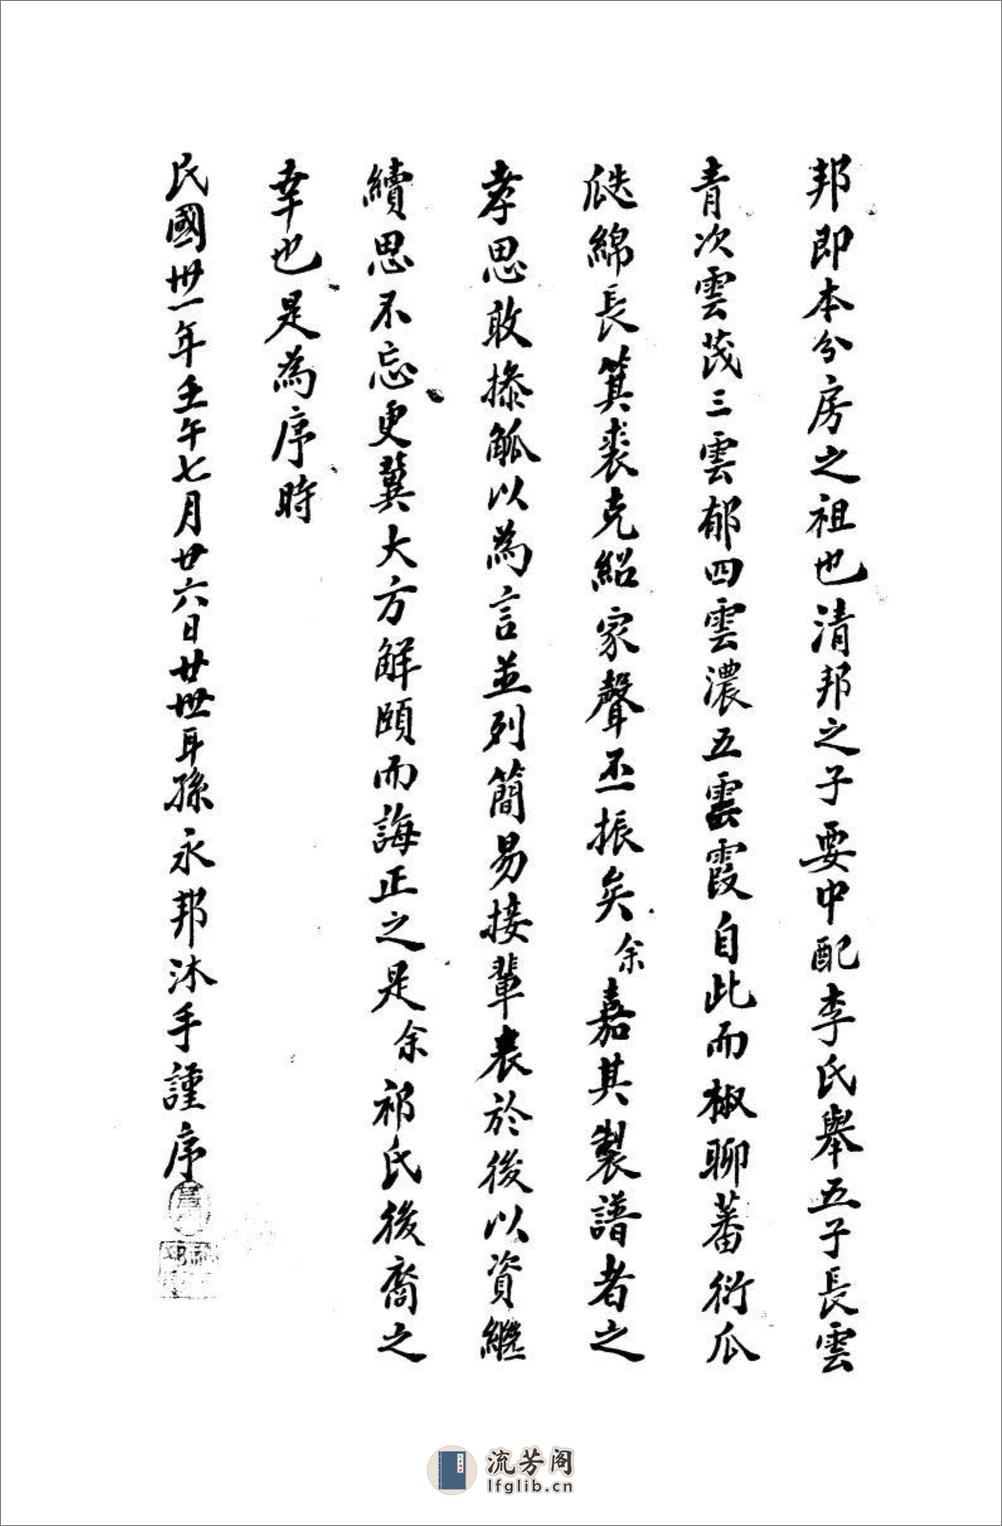 邦即本分房之祖也清邦之子要中配李氏舉五子長雲
青次雲茂三雲郁四雲濃五雲霞自此而椒聊蕃衍瓜
瓞綿長箕裘克紹家聲丕振矣余嘉其製譜者之
孝思敢搽觚以為言並列簡易接輩表於後以資繼
續思不忘更冀大方解頤而誨正之是余祁氏後裔之
幸也是為序時
民國卅一年壬午七月廿六日廿世耳孫永邦沐手謹序
流芳阁
lfglib.cn